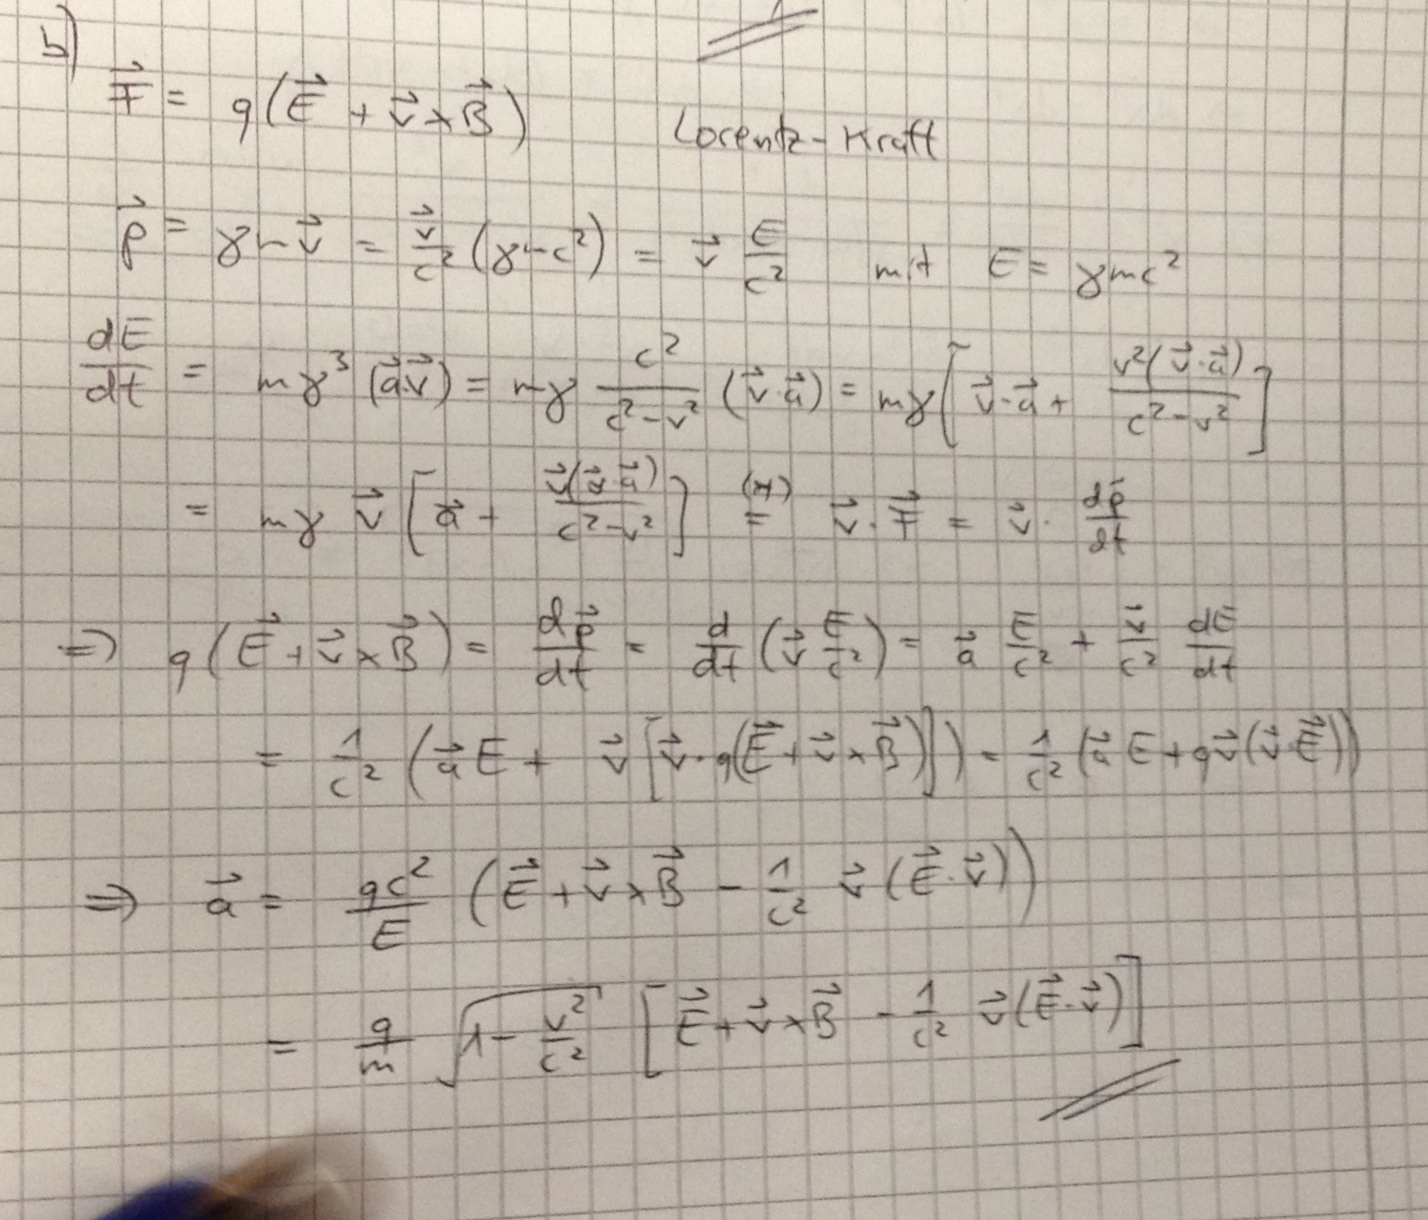 b)
F⃗ = q(E⃗ + v⃗ × B⃗) Lorentz-Kraft
p⃗ = γmv⃗ = v⃗/c² (γmc²) = v⃗ E/c² mit E = γmc²
dE/dt = mγ³ (a⃗v⃗) = mγ c²/(c²-v²) (v⃗·a⃗) = mγ[v⃗·a⃗ + v²(v⃗·a⃗)/(c²-v²)]
= mγ v⃗ [a⃗ + v⃗(v⃗·a⃗)/(c²-v²)] (*)= v⃗·F⃗ = v⃗·dp⃗/dt
⇒ q(E⃗ + v⃗ × B⃗) = dp⃗/dt = d/dt (v⃗ E/c²) = a⃗ E/c² + v⃗/c² dE/dt
= 1/c² (a⃗ E + v⃗ [v⃗·q(E⃗ + v⃗ × B⃗)]) = 1/c² (a⃗ E + qv⃗(v⃗·E⃗))
⇒ a⃗ = qc²/E (E⃗ + v⃗ × B⃗ - 1/c² v⃗ (E⃗·v⃗))
= q/m √(1 - v²/c²) [E⃗ + v⃗ × B⃗ - 1/c² v⃗(E⃗·v⃗)]